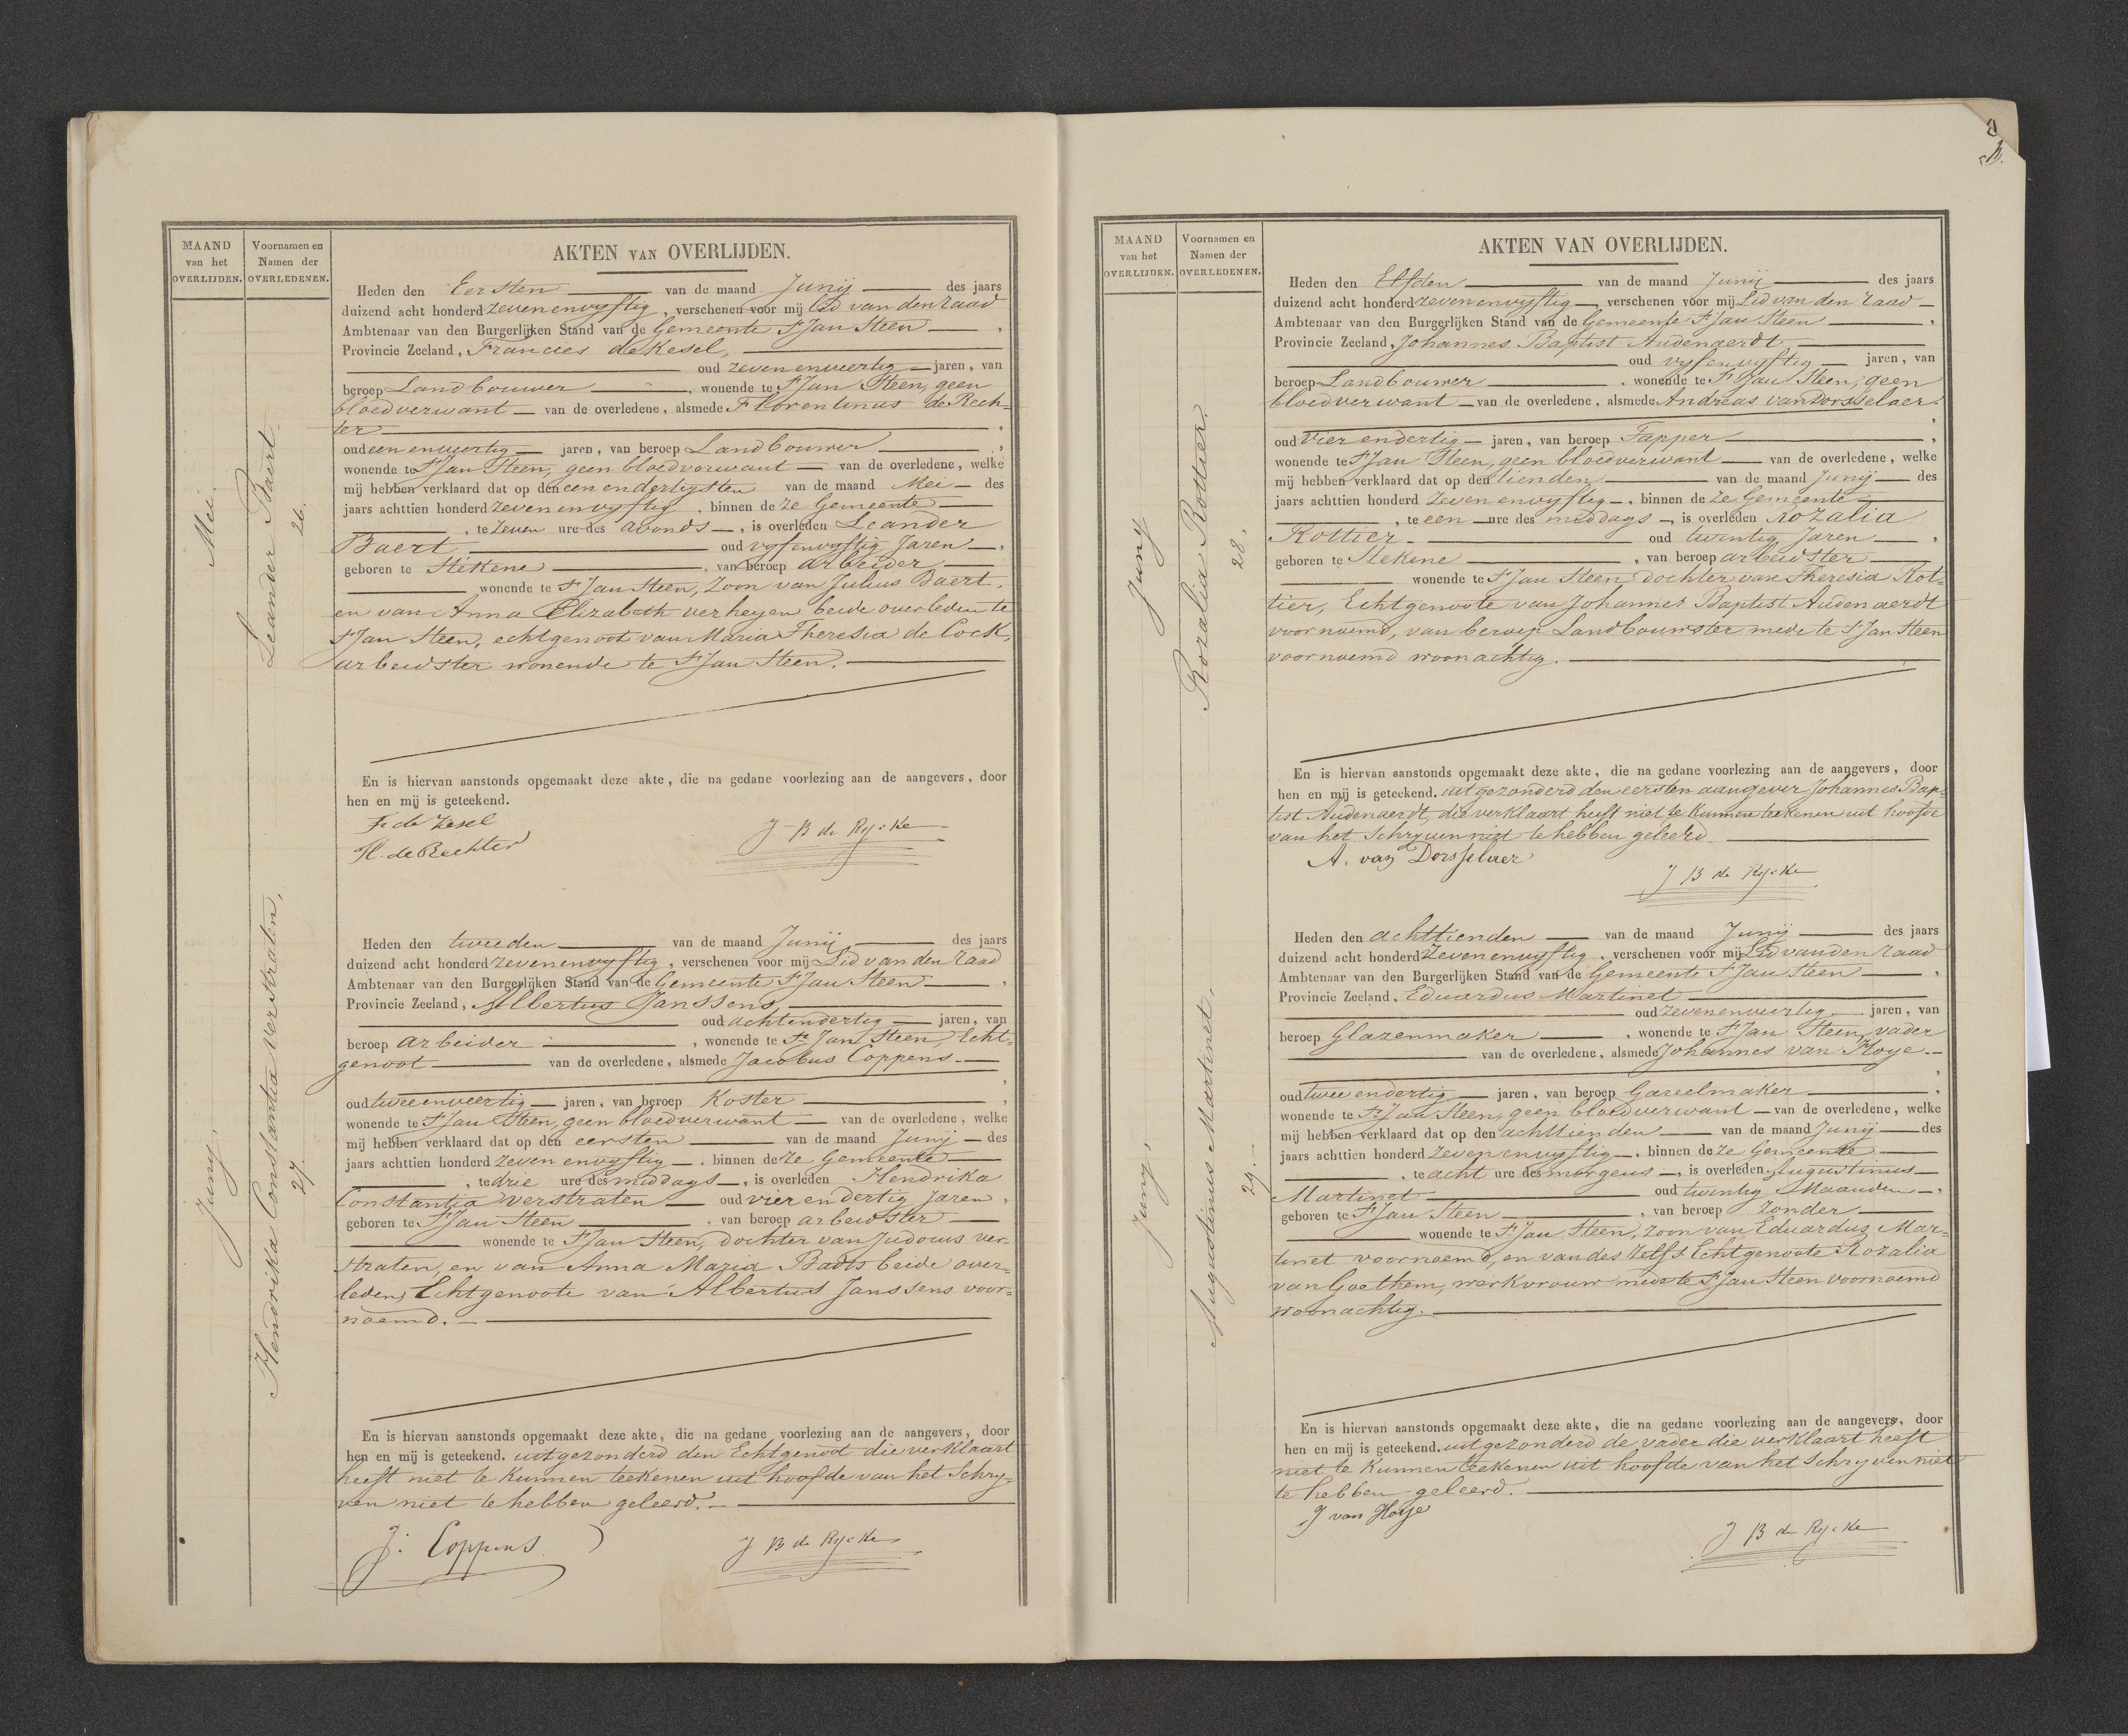 MAAND
van het
OVERLIJDEN.
Voornamen en
Namen der
OVERLEDENEN.
AKTEN VAN OVERLIJDEN.
Mei.
Leander Baert
26.
Heden den Eersten van de maand Junij des jaars
duizend acht honderd zevenenvyftig, verschenen voor mij Lid van den raad
Ambtenaar van den Burgerlijken Stand van de Gemeente St Jan Steen,
Provincie Zeeland, Francies de Kesel,
oud zevenenveertig jaren, van
beroep Landbouwer, wonende te St Jan Steen, geen
bloedverwant van de overledene, alsmede Florentinus de Rech-
ter,
oud eenenveertig jaren, van beroep Landbouwer,
wonende te St Jan Steen, geen bloedverwant van de overledene, welke
mij hebben verklaard dat op den eenendertigsten van de maand Mei des
jaars achttien honderd zevenenvyftig, binnen deze Gemeente
, te zeven ure des avonds, is overleden Leander
Baert oud vyfenvyftig Jaren,
geboren te Stekene, van beroep arbeider
wonende te St Jan Steen, Zoon van Julius Baert,
en van Anna Elizabeth verheyen beide overleden te
St Jan Steen, echtgenoot van Maria Theresia de Cock,
arbeidster wonende te St Jan Steen.
En is hiervan aanstonds opgemaakt deze akte, die na gedane voorlezing aan de aangevers, door
hen en mij is geteekend.
F. de Kesel
Fl. de Rechter
J B de Rycke
Juny.
Hendrika Constantia Verstraten,
27.
Heden den tweeden van de maand Junij des jaars
duizend acht honderd zevenenvyftig, verschenen voor mij Lid van den raad
Ambtenaar van den Burgerlijken Stand van de Gemeente St Jan Steen,
Provincie Zeeland, Albertus Janssens,
oud achtendertig jaren, van
beroep arbeider, wonende te St Jan Steen, Echt-
genoot van de overledene, alsmede Jacobus Coppens.
,
oud tweeenveertig jaren, van beroep Koster,
wonende te St Jan Steen, geen bloedverwant van de overledene, welke
mij hebben verklaard dat op den eersten van de maand Junij des
jaars achttien honderd zevenenvyftig, binnen deze Gemeente
, te drie ure des middags, is overleden Hendrika
Constantia Verstraten oud vierendertig Jaren,
geboren te St Jan Steen, van beroep arbeidster
wonende te St Jan Steen, dochter van Judocus ver-
straten, en van Anna Maria Badts beide over-
leden, Echtgenoote van Albertus Janssens voor-
noemd.
En is hiervan aanstonds opgemaakt deze akte, die na gedane voorlezing aan de aangevers, door
hen en mij is geteekend. uitgezonderd den Echtgenoot die verklaart
heeft niet te kunnen teekenen uit hoofde van het Schry-
ven niet te hebben geleerd.
J. Coppens
J B de Rycke
MAAND
van het
OVERLIJDEN.
Voornamen en
Namen der
OVERLEDENEN.
AKTEN VAN OVERLIJDEN.
Juny
Rozalia Rottier.
28.
Heden den Elfden van de maand Junij des jaars
duizend acht honderd zevenenvyftig, verschenen voor mij Lid van den raad
Ambtenaar van den Burgerlijken Stand van de Gemeente St Jan Steen,
Provincie Zeeland, Johannes Baptist Audenaerdt,
oud vyfenvyftig jaren, van
beroep Landbouwer, wonende te St Jan Steen, geen
bloedverwant van de overledene, alsmede Andreas van Dorsselaer.
,
oud vierendertig jaren, van beroep Tapper,
wonende te St Jan Steen, geen bloedverwant van de overledene, welke
mij hebben verklaard dat op den tienden van de maand Junij des
jaars achttien honderd zevenenvyftig, binnen deze Gemeente
, te een ure des middags, is overleden Rozalia
Rottier. oud twintig Jaren,
geboren te Stekene, van beroep arbeidster
wonende te St Jan Steen dochter van Theresia Rot-
tier, Echtgenoote van Johannes Baptist Audenaerdt
voornoemd, van beroep Landbouwster mede te St Jan Steen
voornoemd woonachtig.
En is hiervan aanstonds opgemaakt deze akte, die na gedane voorlezing aan de aangevers, door
hen en mij is geteekend. uitgezonderd den eersten aangever Johannes Bap-
tist Audenaerdt, die verklaart heeft niet te kunnen teekenen uit hoofde
van het Schryven niet te hebben geleerd.
A. van Dorsselaer
J B de Rycke
Juny,
Augustinus Martinet.
29.
Heden den achttienden van de maand Junij des jaars
duizend acht honderd zevenenvyftig, verschenen voor mij Lid van den raad
Ambtenaar van den Burgerlijken Stand van de Gemeente St Jan Steen,
Provincie Zeeland, Eduardus Martinet
oud zevenenveertig jaren, van
beroep Glazenmaker, wonende te St Jan Steen, vader
van de overledene, alsmede Johannes van Hoye.
,
oud tweeendertig jaren, van beroep Gareelmaker,
wonende te St Jan Steen, geen bloedverwant van de overledene, welke
mij hebben verklaard dat op den achttienden van de maand Junij des
jaars achttien honderd zevenenvyftig, binnen deze Gemeente
, te acht ure des morgens, is overleden Augustinus
Martinet oud twintig Maanden,
geboren te St Jan Steen, van beroep zonder
wonende te St Jan Steen, Zoon van Eduardus Mar-
tinet voornoemd, en van des Zelfs Echtgenoote Rozalia
van Goethem, werkvrouw mede te St Jan Steen voornoemd
woonachtig.
En is hiervan aanstonds opgemaakt deze akte, die na gedane voorlezing aan de aangevers, door
hen en mij is geteekend. uitgezonderd de vader die verklaart heeft
niet te Kunnen teekenen uit hoofde van het Schryven niet
te hebben geleerd.
J van Hoye
J B de Rycke